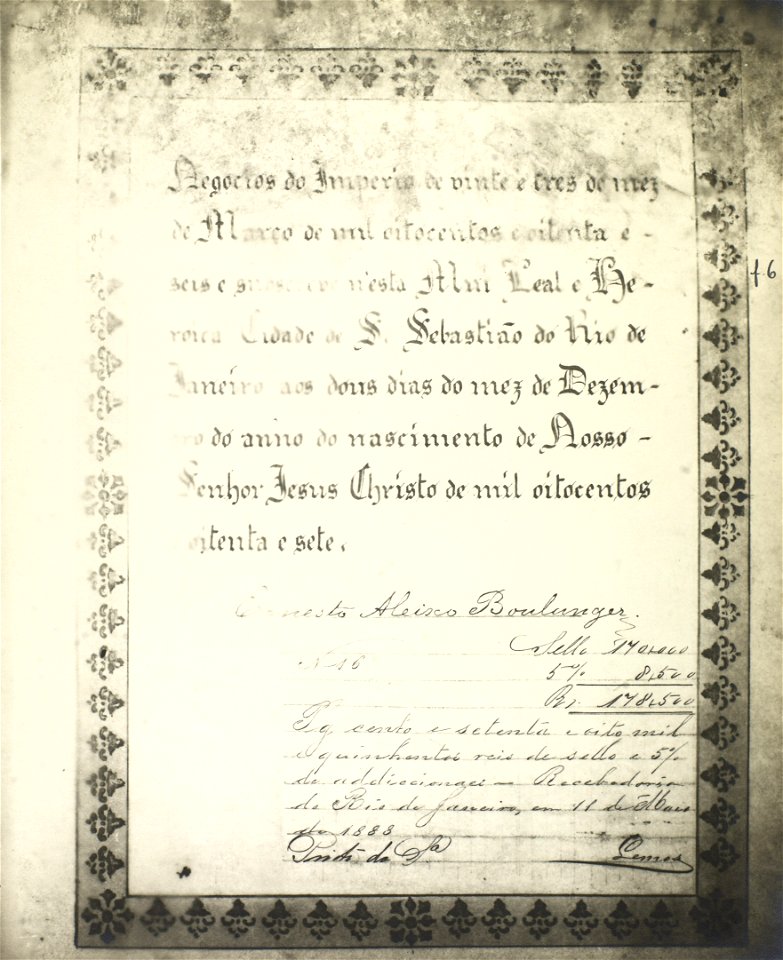 Negocios do Imperio de vinte e tres de mez
de Março de mil oitocentos e oitenta e -
seis e subscrevo n'esta Mui Leal e He-
roica Cidade de S. Sebastião do Rio de
Janeiro aos dous dias do mez de Dezem-
bro do anno do nascimento de Nosso -
Senhor Jesus Christo de mil oitocentos
oitenta e sete.
f 6
Ernesto Aleixo Boulanger.
Sello 170$000
Nº 10
5% 8$500
Rs. 178$500
Pg cento e setenta e oito mil
e quinhentos reis de sello e 5%
de addiccionaes - Recebedoria
do Rio de Janeiro, em 11 de
de 1888
Lemos